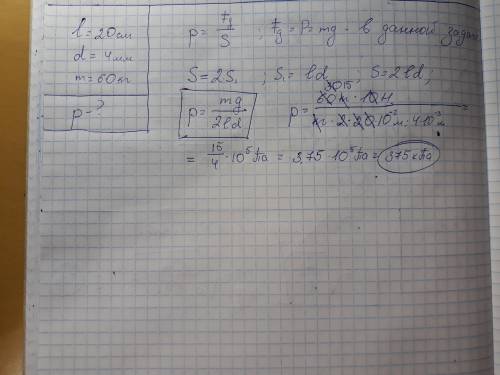 l = 20 см
d = 4 мм
m = 60 кг
p - ?
p = Fд / S ; Fд = P = mg - в данной задаче
S = 2S₁ ; S₁ = ld ; S = 2ld,
p = mg / 2ld
p = 60 кг · 10 Н / кг · 2 · 20 · 10⁻² м · 4 · 10⁻³ м =
= 15/4 · 10⁵ Па = 3,75 · 10⁵ Па = 375 кПа